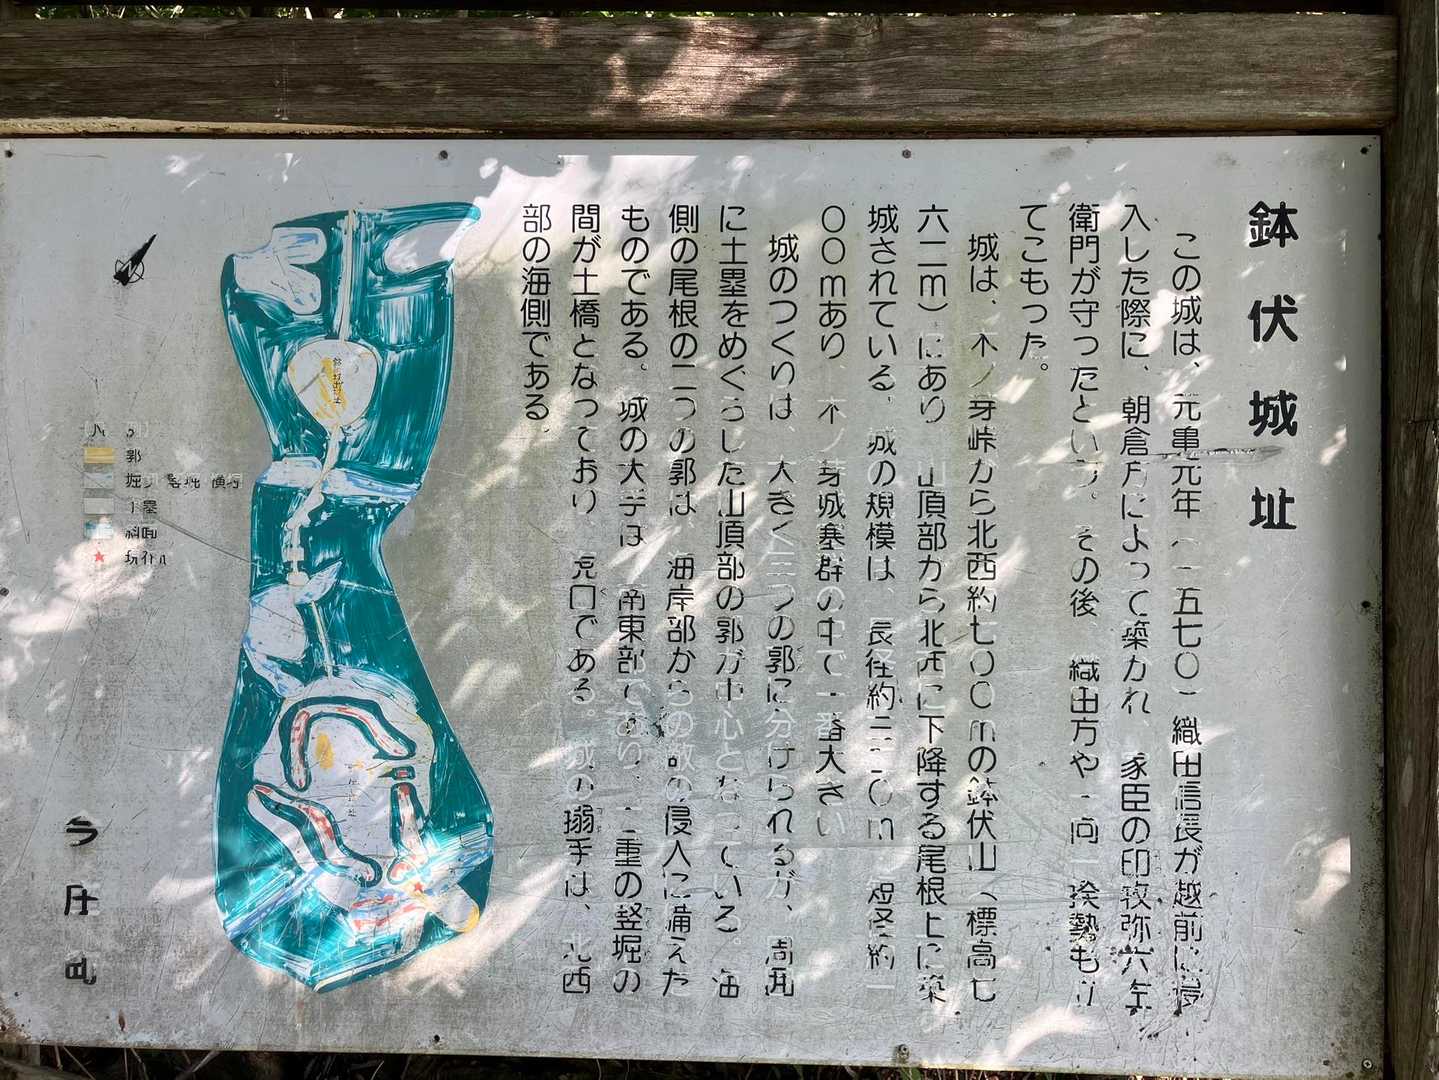 鉢伏城址
この城は、元亀元年（一五七〇）織田信長が越前に侵
入した際に、朝倉方によって築かれ、家臣の印牧弥六左
衛門が守ったという。その後、織田方や一向一揆勢も立
てこもった。
城は、木ノ芽峠から北西約七〇〇mの鉢伏山（標高七
六二m）にあり、山頂部から北西に下降する尾根上に築
城されている。城の規模は、長径約 〇m、短径約一
〇〇mあり、木ノ芽城塞群の中で一番大きい
城のつくりは、大きく三つの郭に分けられるが、周囲
に土塁をめぐらした山頂部の郭が中心となっている。海
側の尾根の二つの郭は、海岸部からの敵の侵入に備えた
ものである。城の大手は、南東部であり、二重の竪堀の
間が土橋となっており、虎口である。城の搦手は、北西
部の海側である。
郭
土塁
斜面
現在地
今庄町